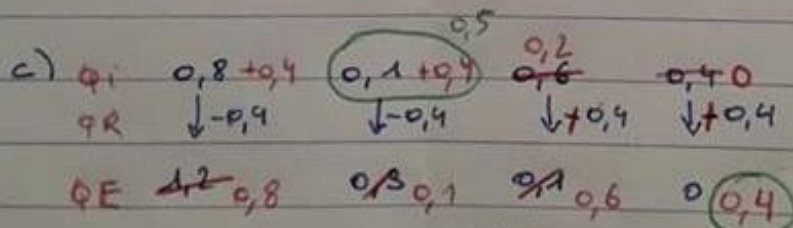 0,5
0,2
c) Qi 0,8 +0,4 0,1 +0,4 0,6 0,4 0
QR ↓-0,4 ↓-0,4 ↓+0,4 ↓+0,4
QE 1,2 0,8 0,5 0,1 0,1 0,6 0 0,4